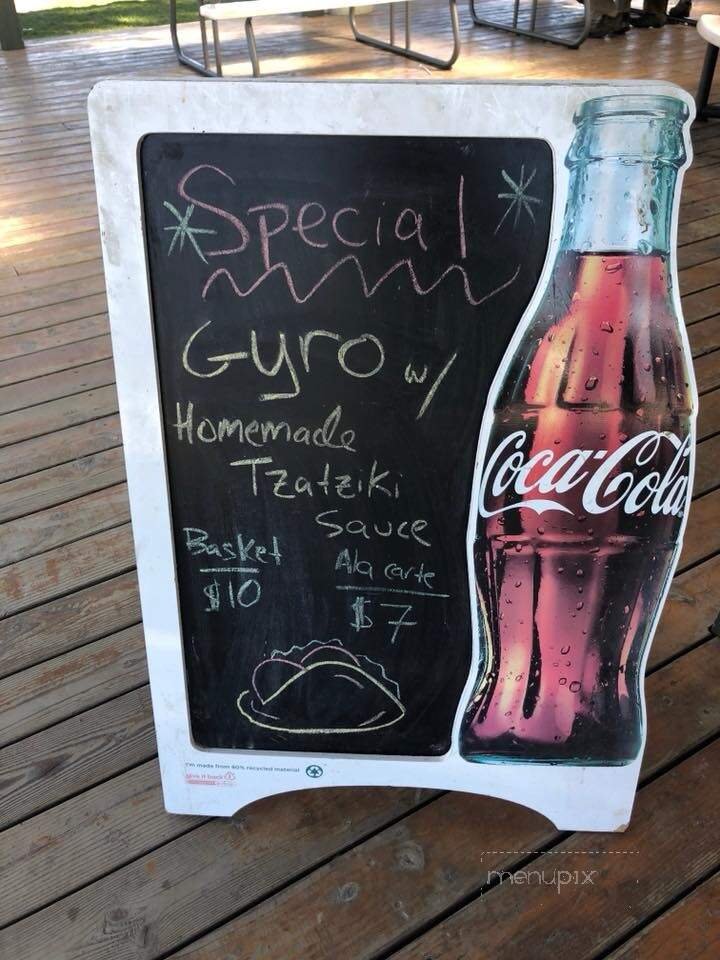 *Special*
Gyro w/
Homemade
Tzatziki
Sauce
Basket
$10
Ala carte
$7
Coca-Cola
I'm made from 60% recycled material
give it back
menupix